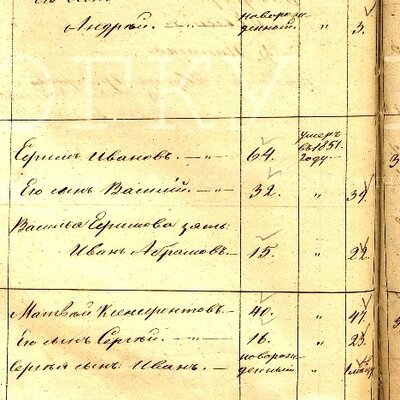 Андрей. новорож-
денный " 3.
Ефимъ Ивановъ. — " — 64. умеръ
въ 1851.
году.
Его сынъ Василій. — " — 32. " 39.
Василья Ефимова зять
Иванъ Абрамовъ — 15. " 22.
Матвѣй Климентовъ — 40. " 47.
Его сынъ Сергѣй. — " — 16. " 23.
Сергѣя сынъ Иванъ. — новорож-
денный "